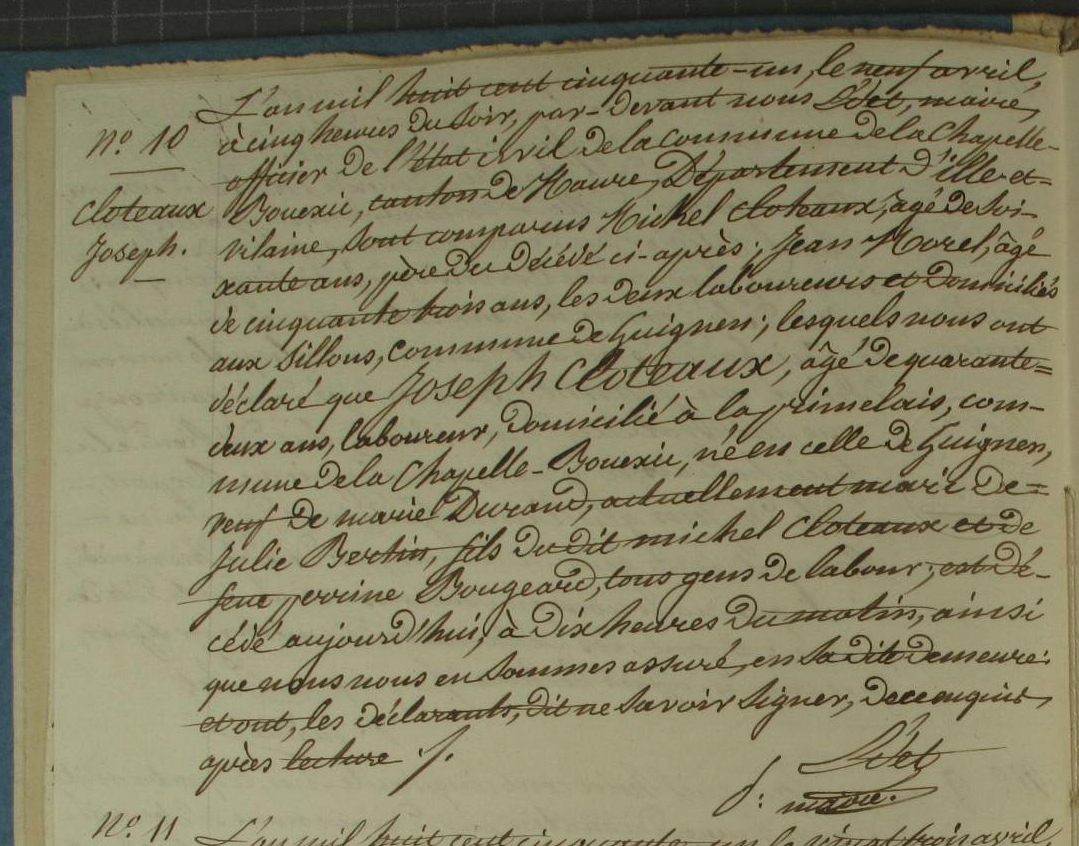 L'an mil huit cent cinquante-un, le neuf avril,
à cinq heures du soir, par-devant nous maire,
officier de l'état civil de la commune de la Chapelle-
Bouexic, canton de Maure, Département d'ille-et-
vilaine, sont comparus Michel Cloteaux, âgé de soi-
xante ans, père du décédé ci-après; Jean Morel, âgé
de cinquante trois ans, les deux laboureurs et domiciliés
aux Sillons, commune de Guignen; lesquels nous ont
déclaré que Joseph Cloteaux, âgé de quarante=
deux ans, laboureur, domicilié à la primelais, com-
mune de la Chapelle-Bouexic, né en celle de Guignen,
veuf de marie Durand, actuellement marié de=
Julie Bertin, fils du dit michel Cloteaux et de
feue perrine Bougeard, tous gens de labour; est dé-
cédé aujourd'hui, à dix heures du matin, ainsi
que nous nous en sommes assuré, en sa dite demeure:
et ont, les déclarants, dit ne savoir signer, de ce enquis,
après lecture ./.
maire.
N.º 10
Cloteaux
Joseph.
N.º 11
L'an mil huit cent cinquante-un le vingt trois avril,